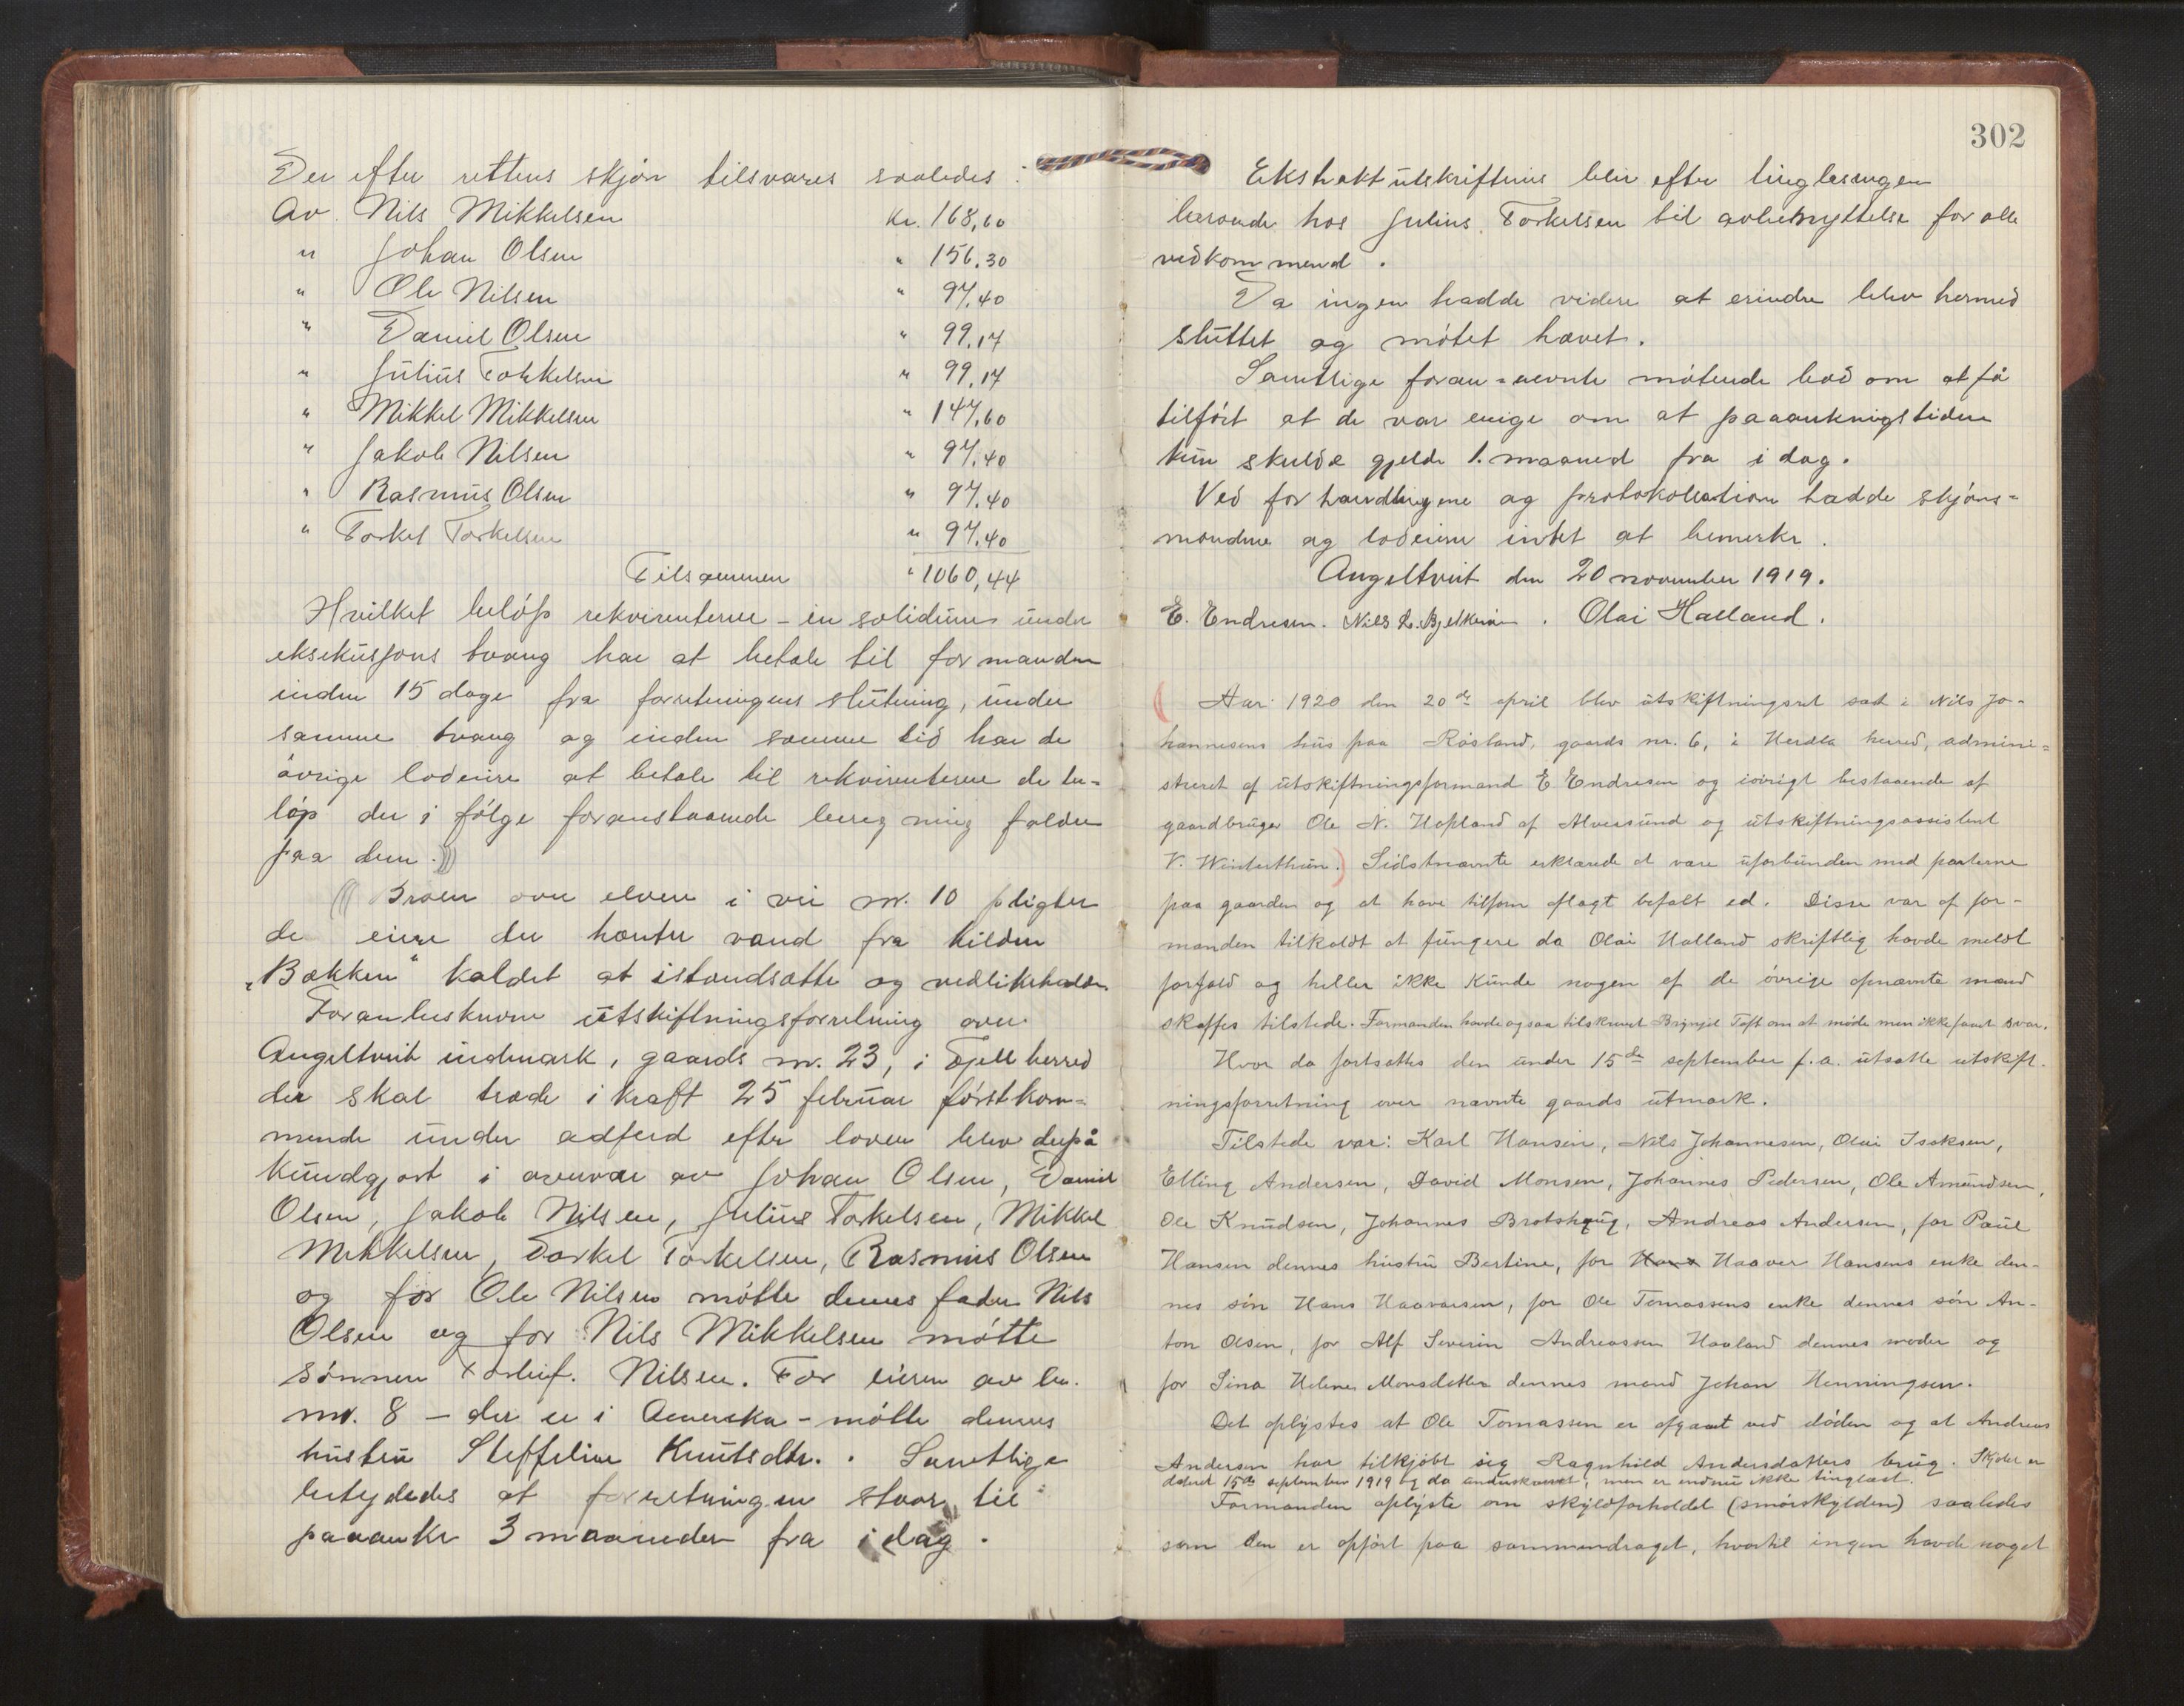 Der efter rettens skjøn tilsvares saaledes:
Av Nils Mikkelsen kr. 168,60
" Johan Olsen " 156.30
" Ole Nilsen " 97.40
" Daniel Olsen " 99.17
" Julius Torkelsen " 99.17
" Mikkel Mikkelsen " 147,60
" Jakob Nilsen " 97.40
" Rasmus Olsen " 97.40
" Torkel Torkelsen " 97.40
Tilsammen " 1060,44
Hvilket beløp rekvirenterne - in solidum under
eksekusjons tvang har at betale til formanden
inden 15 dage fra forretningens slutning, under
samme tvang og inden samme tid har de
øvrige lodeiere at betale til rekvirenterne de be-
løp der i følge foranstaaende beregning falder
paa dem.
Broen over elven i vei nr. 10 pligter
de eiere der henter vand fra kilden
"Bækken" kaldet at istandsætte og vedlikeholde.
Foranbeskrevne utskiftningsforretning over
Angeltveit indmark, gaards nr. 23, i Fjell herred
der skal træde i kraft 25 februar førstkom-
mende under adferd efter loven blev derpå
kundgjort i overvær av Johan Olsen, Daniel
Olsen, Jakob Nilsen, Julius Torkelsen, Mikkel
Mikkelsen, Torkel Torkelsen, Rasmus Olsen
og for Ole Nilsen møtte dennes fader Nils
Olsen og for Nils Mikkelsen møtte
sønnen Torleif. Nilsen. For eieren av br.
nr. 8 - der er i Amerika - møtte dennes
hustru Steffeline Knutsdtr. . Samtlige
betydedes at forretningen staar til
paaanke 3 maaneder fra idag.
302
Ekstraktutskriftens blir efter tinglesningen
beroende hos Julius Torkelsen til avbenyttelse for alle
vedkommend.
Da ingen hadde videre at erindre blev hermed
sluttet og møtet hævet.
Samtlige foran-nevnte møtende bad om at få
tilført at de var enige om at paaankningstiden
kun skulde gjelde 1. maaned fra i dag.
Ved forhandlingene og protokollation hadde skjøns-
mændene og lodeierne intet at bemerke.
Angeltveit den 20 november 1919.
E. Endresen. Nils L. Bjelkerøen. Olai Halland.
Aar 1920 den 20de april blev utskiftningsret sat i Nils Jo-
hannesens hus paa Røsland, gaards nr. 6, i Herdla herred, admini-
streret af utskiftningsformand E Endresen og iøvrigt bestaaende af
gaardbruger Ole N. Hopland af Alversund og utskiftningsassistent
V. Winterthun. Sidstnævnte erklærede at være uforbunden med parterne
paa gaarden og at have tilforn aflagt befalt ed. Disse var af for-
manden tilkaldt at fungere da Olai Halland skriftlig havde meldt
forfald og heller ikke kunde nogen af de øvrige opnævnte mænd
skaffes tilstede. Formanden havde ogsaa tilskrevet Brynjel Toft om at møde men ikke faaet svar.
Hvor da fortsattes den under 15de september f.a. utsatte utskift-
ningsforretning over nævnte gaards utmark.
Tilstede var: Karl Hansen, Nils Johannesen, Olai Isaksen,
Elling Andersen, David Monsen, Johannes Pedersen, Ole Amundsen,
Ole Knudsen, Johannes Brotshaug, Andreas Andersen, for Paul
Hansen dennes hustru Bertine, for Hans Haaver Hansens enke den-
nes søn Hans Haaversen, for Ole Tomassens enke dennes søn An-
ton Olsen, for Alf Severin Andreassen Haaland dennes moder og
for Sina Helene Monsdatter dennes mand Johan Henningsen.
Det oplystes at Ole Tomassen er afgaaet ved døden og at Andreas
Andersen har tilkjøbt sig Ragnhild Andersdatters brug. Skjødet er
dateret 15de september 1919 og da underskrevet, men er endnu ikke tinglæst.
Formanden oplyste om skyldforholdet (smørskylden) saaledes
som den er opført paa sammendraget, hvortil ingen havde noget